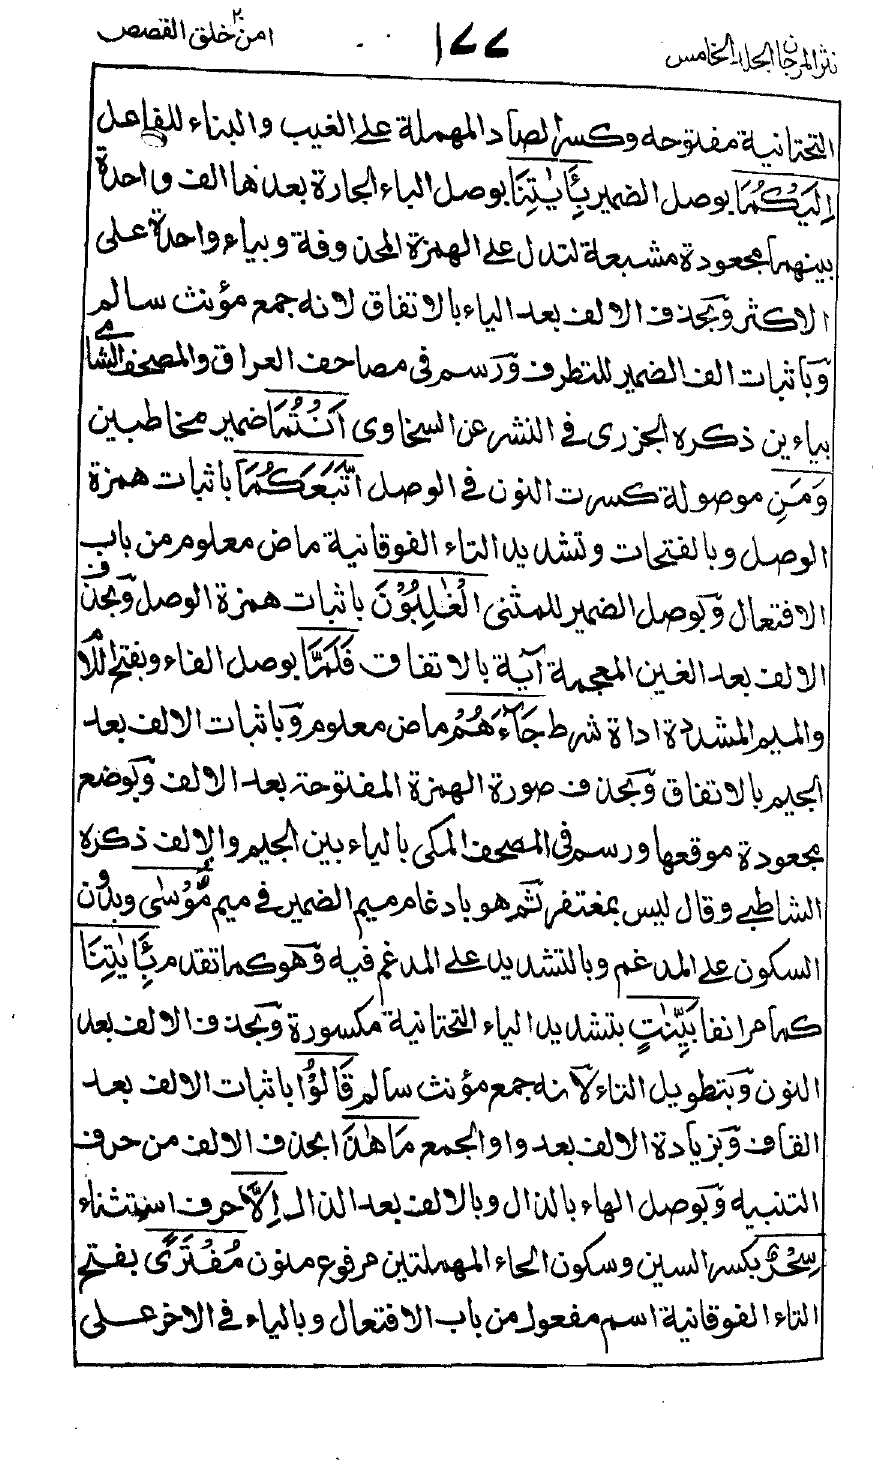 نثر المرجان الجلد الخامس ١٧٧ امن خلق ٢٠ القصص
التحتانية مفتوحة وكسر الصاد المهملة على الغيب والبناء للفاعل
اِلَيْكُمَا بوصل الضمير بِاٰيٰتِنَا بوصل الباء الجارة بعدها الف واحدة
بينهما مجعودة مشبعة لتدل على الهمزة المحذوفة وبياء واحدة على
الاكثر وبحذف الالف بعد الياء بالاتفاق لانه جمع مؤنث سالم
وباثبات الف الضمير للتطرف ورسم فى مصاحف العراق والمصحف الشامى
بياءين ذكره الجزرى فى النشر عن السخاوى اَنْتُمَا ضمير مخاطبين
وَمَنِ موصولة كسرت النون فى الوصل اتَّبَعَكُمَا باثبات همزة
الوصل وبالفتحات وتشديد التاء الفوقانية ماض معلوم من باب
الافتعال وبوصل الضمير للمثنى الْغٰلِبُوْنَ باثبات همزة الوصل وبحذف
الالف بعد الغين المعجمة آية بالاتفاق فَلَمَّا بوصل الفاء وبفتح اللام
والميم المشددة اداة شرط جَآءَهُمْ ماض معلوم وباثبات الالف بعد
الجيم بالاتفاق وبحذف صورة الهمزة المفتوحة بعد الالف وبوضع
مجعودة موقعها ورسم فى المصحف المكى بالياء بين الجيم والالف ذكره
الشاطبى وقال ليس بمغتفر ثم هو بادغام ميم الضمير فى ميم مُّوْسٰى وبدون
السكون على المدغم وبالتشديد على المدغم فيه وهو كما تقدم بِاٰيٰتِنَا
كما مر انفا بَيِّنٰتٍ بتشديد الياء التحتانية مكسورة وبحذف الالف بعد
النون وبتطويل التاء لانه جمع مؤنث سالم قَالُوْا باثبات الالف بعد
القاف وبزيادة الالف بعد واو الجمع مَا هٰذَا بحذف الالف من حرف
التنبيه وبوصل الهاء بالذال وبالالف بعد الذال اِلَّا حرف استثناء
سِحْرٌ بكسر السين وسكون الحاء المهملتين مرفوع منون مُفْتَرًى بفتح
التاء الفوقانية اسم مفعول من باب الافتعال وبالياء فى الاخر على